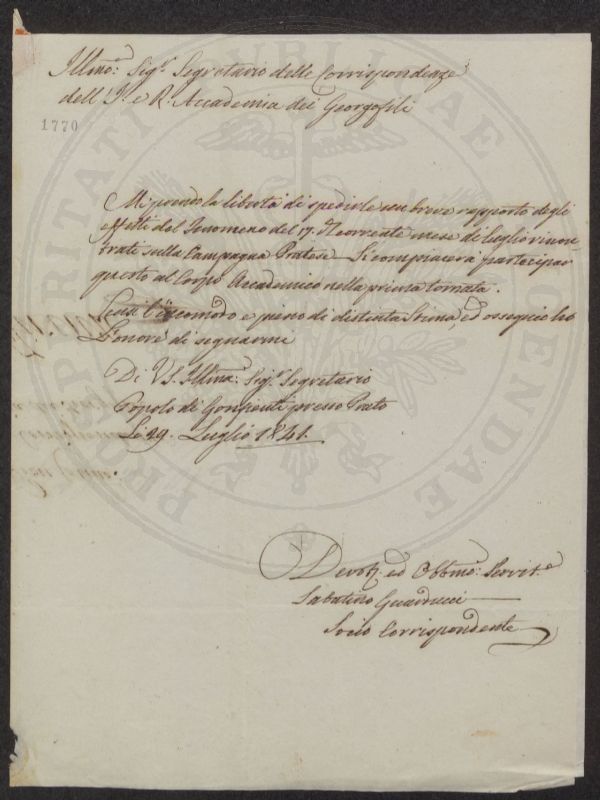 Illmo: Sigr. Segretario delle Corrispondenze
dell'I. e R. Accademia dei Georgofili
1770
Mi prendo la libertà di spedirle un breve rapporto degli
effetti del Fenomeno del 17. del corrente mese di Luglio riscon-
trati sulla Campagna Pratese Si compiacerà partecipar
questo al Corpo Accademico nella prima tornata.
Scusi l'incomodo e pieno di distinta Stima, ed ossequio ho
l'onore di segnarmi
Di VS. Illma: Sigr. Segretario
Popolo di Gonfienti presso Prato
Li 29. Luglio 1841.
Devoto. ed Obbmo: Servite.
Sabatino Guarducci
Socio Corrispondente
PROSPERITATI PUBLICAE AUGENDAE